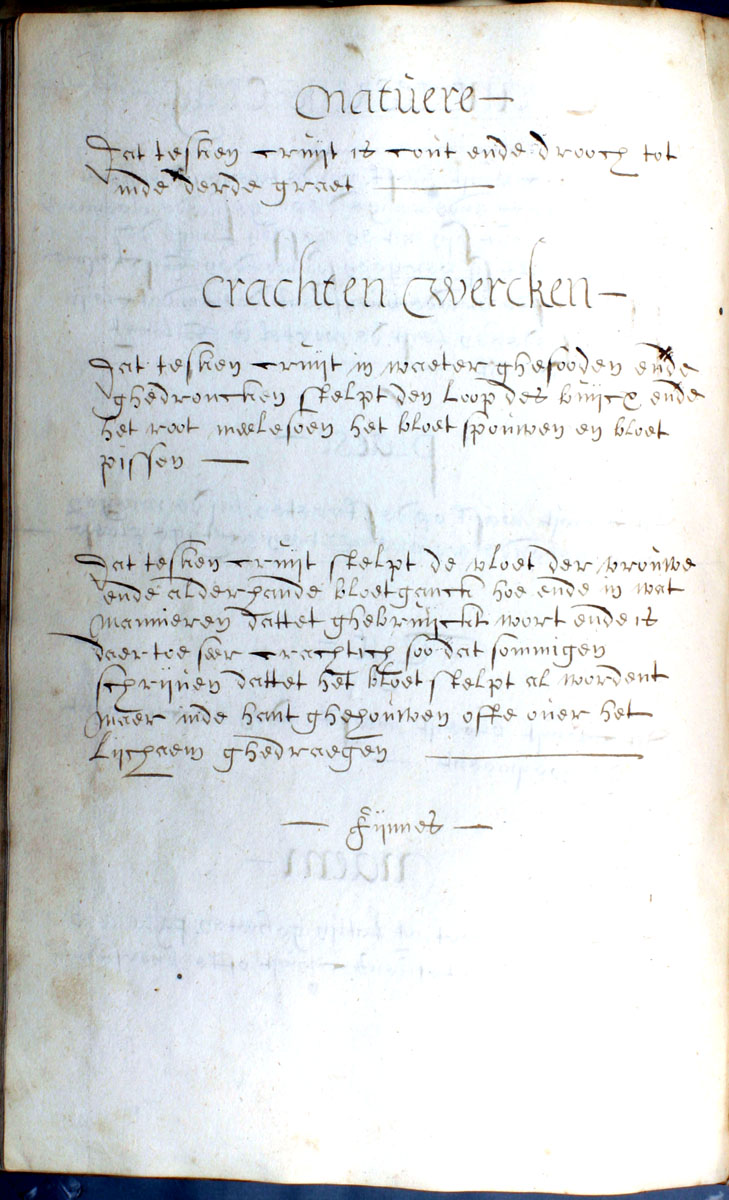 Natuere
Dat tesken cruijt is cout ende drooch tot
inde derde graet
Crachten Wercken
Dat tesken cruijt in waeter ghesooden ende
ghedroncken stelpt den loop des buijcx ende
het root melesoen het bloet spouwen en bloet
pissen
Dat tesken cruijt stelpt de vloet der vrouwe
ende alderhande bloetganck hoe ende in wat
mannieren dattet ghebruijckt wort ende is
daer toe seer crachtich soo dat sommigen
schrijven dattet het bloet stelpt al wordent
maer inde hant ghehouwen offe over het
Lijchaem ghedraegen
Fijnnes